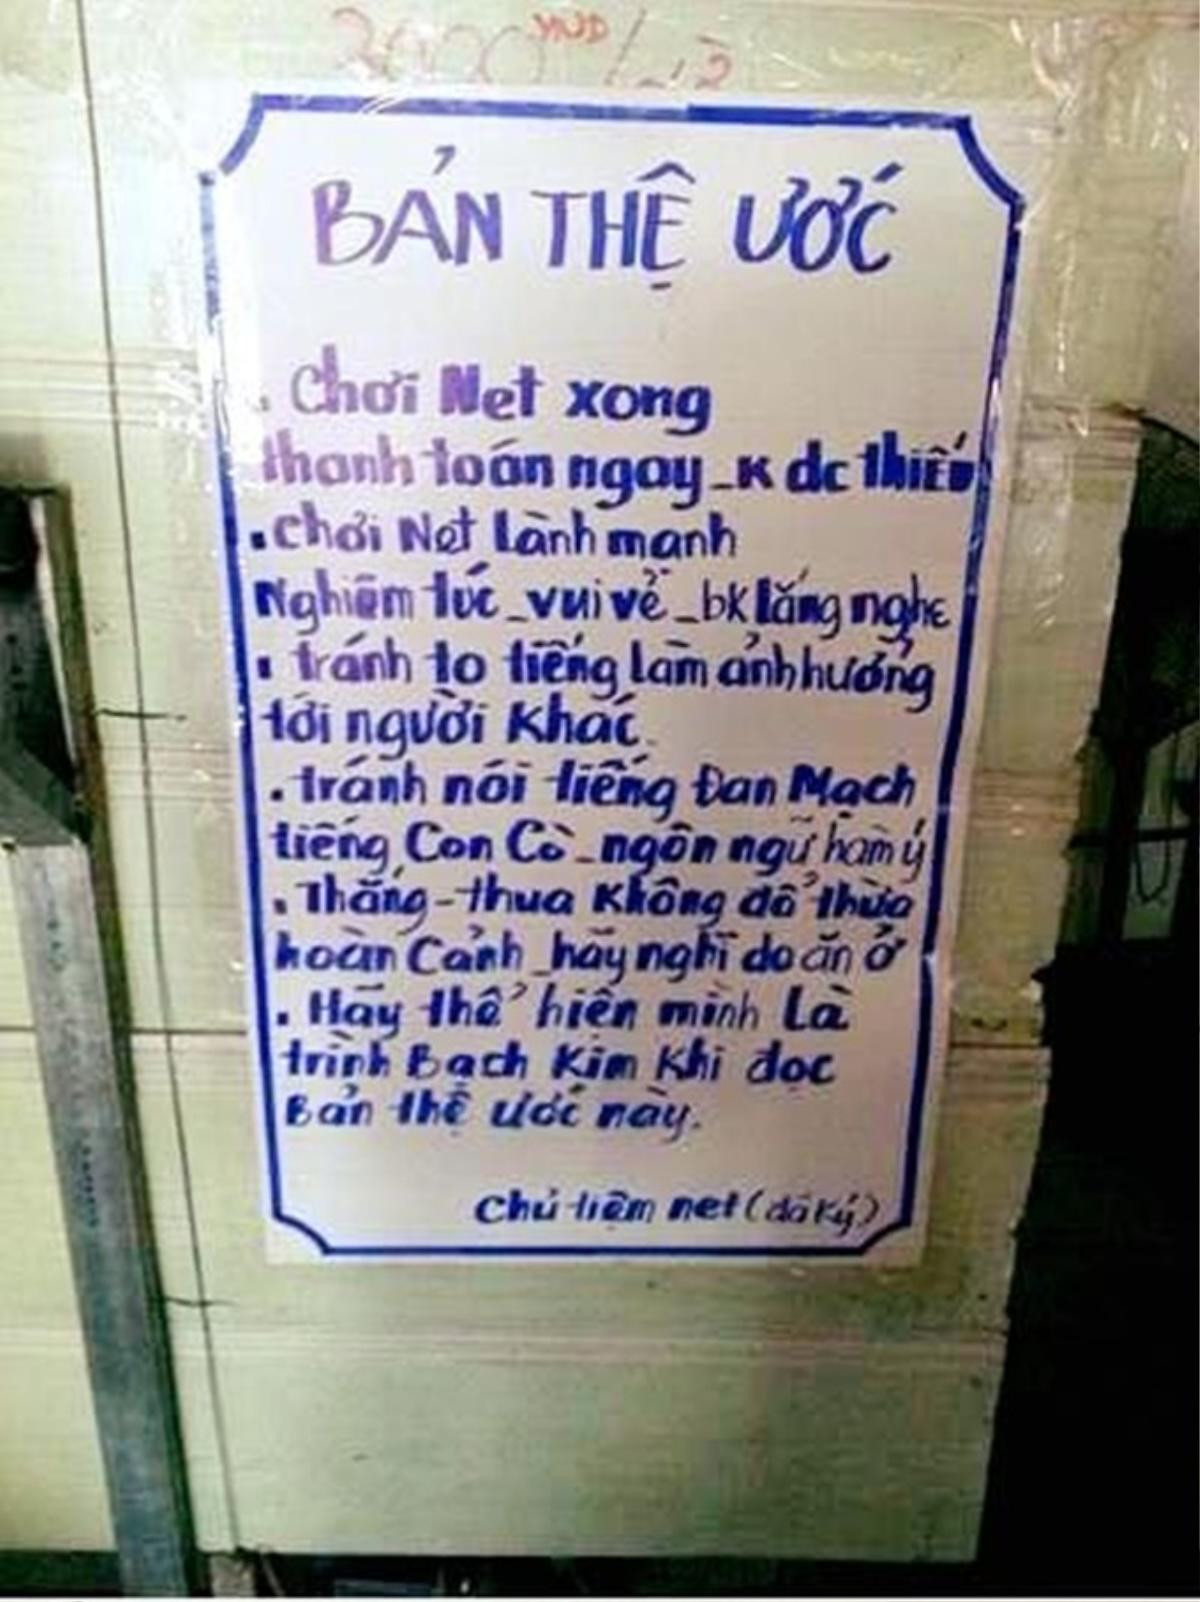 3000 VND/
BẢN THỆ ƯỚC
. Chơi Net xong
thanh toán ngay_K dc thiếu
. Chơi Net Lành mạnh
Nghiêm túc_vui vẻ_bk lắng nghe
. tránh to tiếng làm ảnh hưởng
tới người Khác.
. tránh nói tiếng Đan Mạch
tiếng Con Cò_ngôn ngữ hàm ý
. Thắng-thua Không đổ thừa
hoàn Cảnh_hãy nghĩ do ăn ở
. Hãy thể hiện mình Là
trình Bạch Kim Khi đọc
Bản thệ ước này.
Chủ tiệm net (đã Ký)